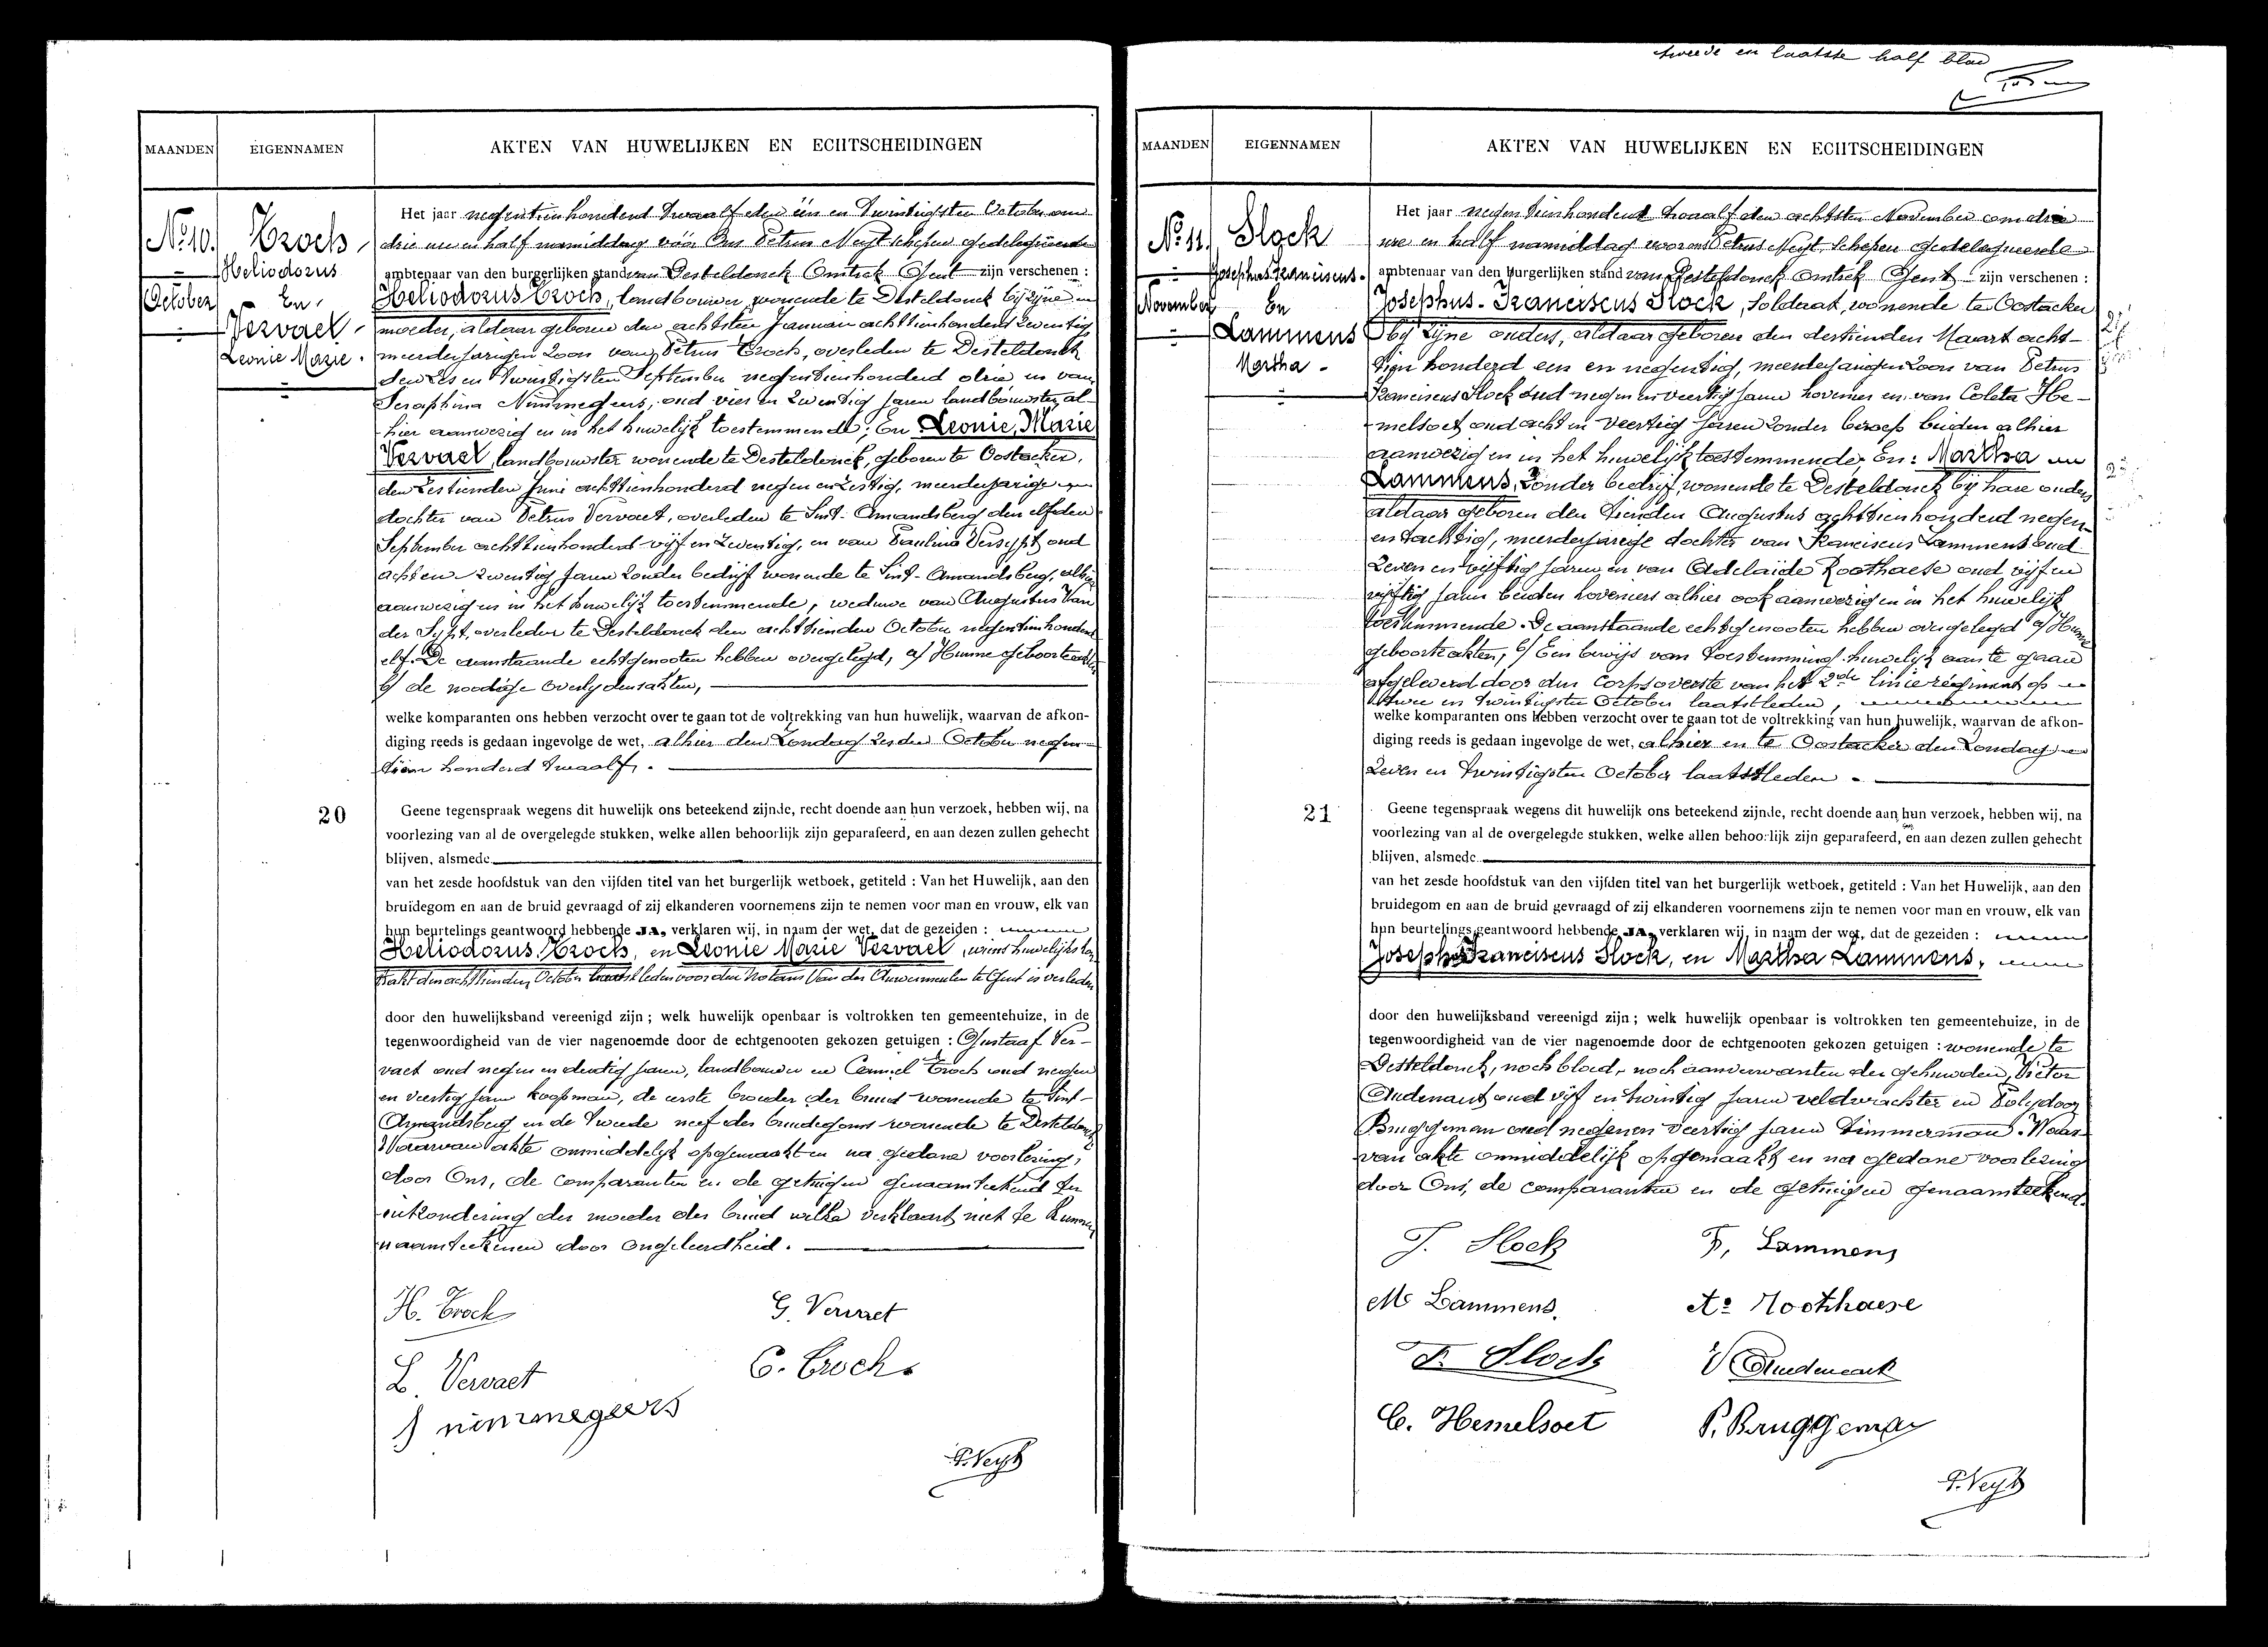 tweede en laatste half blad
MAANDEN
EIGENNAMEN
AKTEN VAN HUWELIJKEN EN ECHTSCHEIDINGEN
No 10.
October
Crock,
Heliodorus
En
Vervaet,
Leonie Marie.
Het jaar negentienhonderd twaalf den één en twintigsten October om
drie ure en half namiddag vóór Ons Petrus Neyt schepen gedelegueerde
ambtenaar van den burgerlijken stand van Desteldonck Omtrek Gent zijn verschenen :
Heliodorus Crock, landbouwer, wonende te Desteldonck bij zijne
moeder, aldaar geboren den achtsten Januari achttienhonderd zeventig
meerderjarigen zoon van Petrus Crock, overleden te Desteldonck
den zes en twintigsten September negentienhonderd drie en van
Seraphina Nimmegeers, oud vier en zeventig jaren landbouwster, al-
hier aanwezig en in het huwelijk toestemmende; En Leonie, Marie
Vervaet, landbouwster wonende te Desteldonck, geboren te Oostacker,
den zestienden Juni achttienhonderd negen en zestig, meerderjarige
dochter van Petrus Vervaet, overleden te Sint-Amandsberg den elfden
September achttienhonderd vijf en zeventig, en van Paulina Versypt oud
acht en zeventig jaren zonder bedrijf wonende te Sint-Amandsberg, alhier
aanwezig en in het huwelijk toestemmende, weduwe van Augustus Van
der Sypt, overleden te Desteldonck den achttienden October negentienhonderd
elf. De aanstaande echtgenooten hebben overgelegd, a/ Hunne geboorteakten
b/ de noodige overlijdensakten,
welke komparanten ons hebben verzocht over te gaan tot de voltrekking van hun huwelijk, waarvan de afkon-
diging reeds is gedaan ingevolge de wet, alhier den Zondag zesden October negen-
tien honderd twaalf.
20
Geene tegenspraak wegens dit huwelijk ons beteekend zijnde, recht doende aan hun verzoek, hebben wij, na
voorlezing van al de overgelegde stukken, welke allen behoorlijk zijn geparafeerd, en aan dezen zullen gehecht
blijven, alsmede
van het zesde hoofdstuk van den vijfden titel van het burgerlijk wetboek, getiteld : Van het Huwelijk, aan den
bruidegom en aan de bruid gevraagd of zij elkanderen voornemens zijn te nemen voor man en vrouw, elk van
hun beurtelings geantwoord hebbende JA, verklaren wij, in naam der wet, dat de gezeiden :
Heliodorus, Crock, en Leonie Marie Vervaet, wiens huwelijkskon-
trakt den achttienden October laatstleden voor den Notaris Van der Auwermeulen te Gent is verleden
door den huwelijksband vereenigd zijn ; welk huwelijk openbaar is voltrokken ten gemeentehuize, in de
tegenwoordigheid van de vier nagenoemde door de echtgenooten gekozen getuigen : Gustaaf Ver-
vaet oud negen en dertig jaren, landbouwer en Camiel Crock oud negen
en veertig jaren koopman, de eerste broeder der bruid wonende te Sint-
Amandsberg en de tweede neef des bruidegoms wonende te Desteldonck
Waarvan akte onmiddelijk opgemaakt en na gedane voorlezing,
door Ons, de comparanten en de getuigen genaamteekend ter
uitzondering der moeder der bruid welke verklaart niet te kunnen
naamteekenen door ongeleerdheid.
H. Crock
G. Vervaet
L. Vervaet
C. Crock.
S nimmegeers
P. Neyt
MAANDEN
EIGENNAMEN
AKTEN VAN HUWELIJKEN EN ECHTSCHEIDINGEN
No 11.
November
Slock
Josephus Franciscus.
En
Lammens
Martha.
Het jaar negentienhonderd twaalf den achtsten November om drie
ure en half namiddag voor ons Petrus Neyt, Schepen gedelegueerde
ambtenaar van den burgerlijken stand van Desteldonck omtrek Gent zijn verschenen :
Josephus-Franciscus Slock, Soldaat, wonende te Oostacker
bij zijne ouders, aldaar geboren den dertienden Maart acht-
tien honderd een en negentig, meerderjarigen zoon van Petrus
Franciscus Slock oud negen en veertig jaren hovenier en van Coleta He-
melsoet oud acht en veertig jaren zonder beroep beiden alhier
aanwezig en in het huwelijk toestemmende. En : Martha
Lammens, zonder bedrijf, wonende te Desteldonck bij hare ouders
aldaar geboren den tienden Augustus achttienhonderd negen
en tachtig, meerderjarige dochter van Franciscus Lammens oud
zeven en vijftig jaren en van Adelaïde Roothaese oud vijf en
vijftig jaren beiden hoveniers alhier ook aanwezig en in het huwelijk
toestemmende. De aanstaande echtgenooten hebben overgelegd a/ Hunne
geboorteakten, b/ Een bewijs van toestemming huwelijk aan te gaan
afgeleverd door den Corpsoverste van het 2de linieregiment op
twee en twintigsten October laatstleden,
welke komparanten ons hebben verzocht over te gaan tot de voltrekking van hun huwelijk, waarvan de afkon-
diging reeds is gedaan ingevolge de wet, alhier en te Oostacker den Zondag
zeven en twintigsten October laatstleden.
21
Geene tegenspraak wegens dit huwelijk ons beteekend zijnde, recht doende aan hun verzoek, hebben wij, na
voorlezing van al de overgelegde stukken, welke allen behoorlijk zijn geparafeerd, en aan dezen zullen gehecht
blijven, alsmede
van het zesde hoofdstuk van den vijfden titel van het burgerlijk wetboek, getiteld : Van het Huwelijk, aan den
bruidegom en aan de bruid gevraagd of zij elkanderen voornemens zijn te nemen voor man en vrouw, elk van
hun beurtelings geantwoord hebbende JA, verklaren wij, in naam der wet, dat de gezeiden :
Josephus Franciscus Slock, en Martha Lammens,
door den huwelijksband vereenigd zijn ; welk huwelijk openbaar is voltrokken ten gemeentehuize, in de
tegenwoordigheid van de vier nagenoemde door de echtgenooten gekozen getuigen : wonende te
Desteldonck, noch bloed-, noch aanverwanten der gehuwden, Victor
Oudenaert oud vijf en twintig jaren veldwachter en Polydoor
Bruggeman oud negen en veertig jaren timmerman. Waar-
van akte onmiddelijk opgemaakt en na gedane voorlezing
door Ons, de comparanten en de getuigen genaamteekend.
J. Slock
F. Lammens
M. Lammens.
Ae Roothaese
F. Slock
V Oudenaert
C. Hemelsoet
P. Bruggeman
P. Neyt